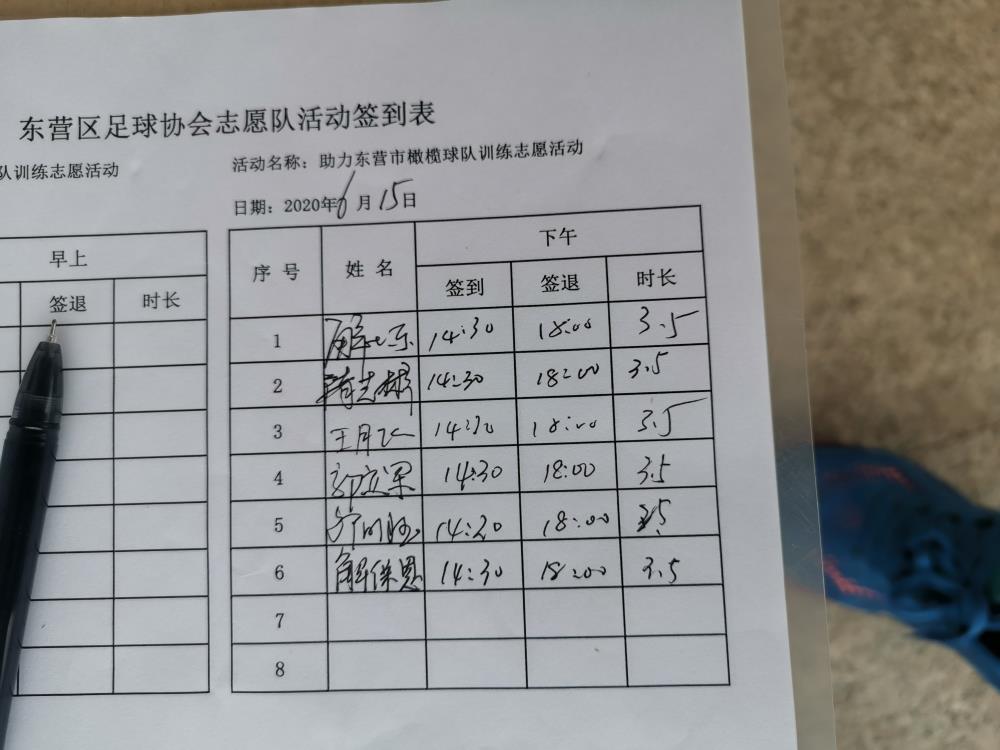 东营区足球协会志愿队活动签到表
队训练志愿活动
活动名称：助力东营市橄榄球队训练志愿活动
日期：2020年6月15日
早上
签退 时长
序号 姓名 下午
签到 签退 时长
1 14:30 18:00 3.5
2 14:30 18:00 3.5
3 王月 14:30 18:00 3.5
4 14:30 18:00 3.5
5 14:30 18:00 3.5
6 解保恩 14:30 18:00 3.5
7
8